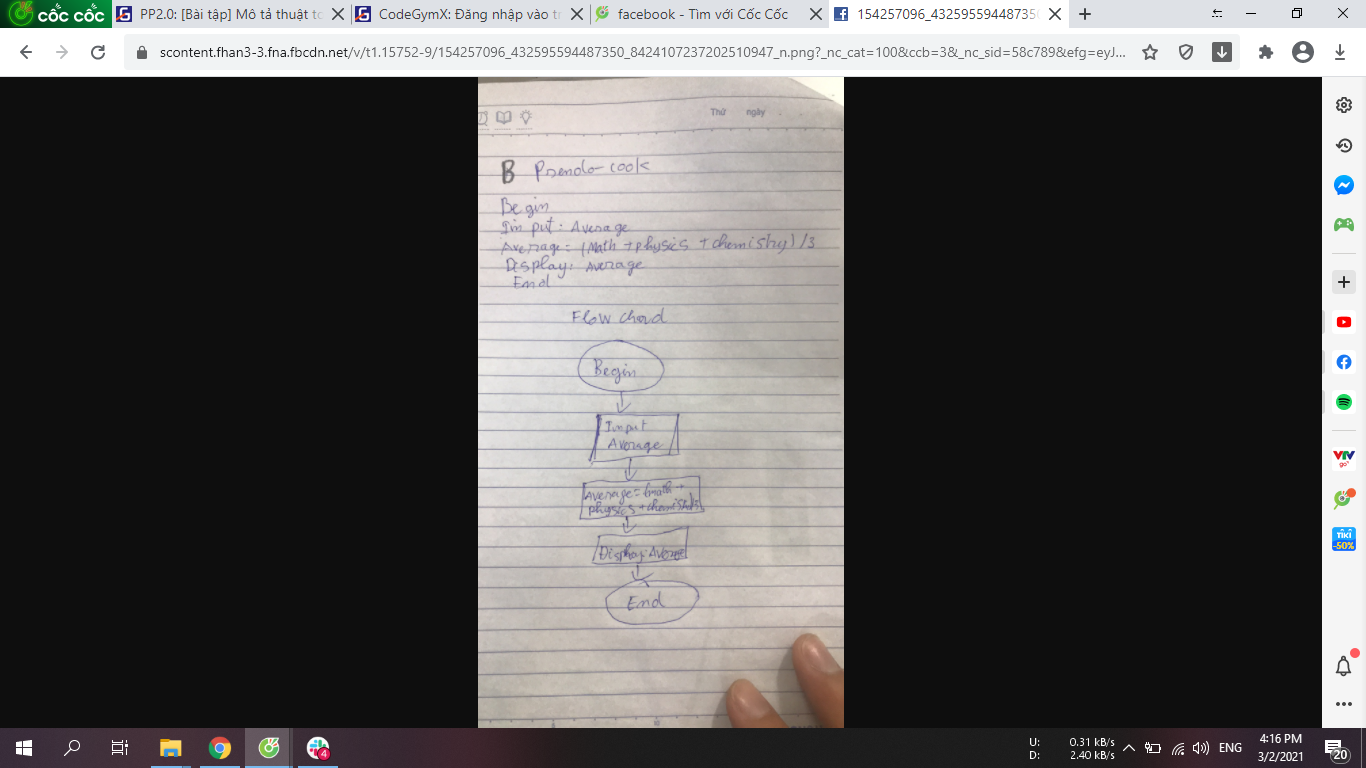 cốc cốc
PP2.0: [Bài tập] Mô tả thuật to
CodeGymX: Đăng nhập vào tr
facebook - Tìm với Cốc Cốc
154257096_432595594487350
scontent.fhan3-3.fna.fbcdn.net/v/t1.15752-9/154257096_432595594487350_8424107237202510947_n.png?_nc_cat=100&ccb=3&_nc_sid=58c789&efg=eyJ...
Thứ ngày
B Pseudo-cook
Begin
Input: Average
Average = (Math + physics + chemistry) / 3
Display: Average
End
Flow chard
Begin
Input
Average
Average = (math +
physics + chemistry)/3
Display: Average
End
VTV
go
TIKI
-50%
4
U: 0.31 kB/s
D: 2.40 kB/s
ENG
4:16 PM
3/2/2021
20